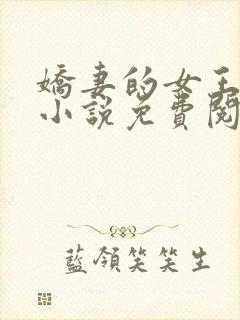 嬌妻的女王
小說免費閱
藍領笑笑生